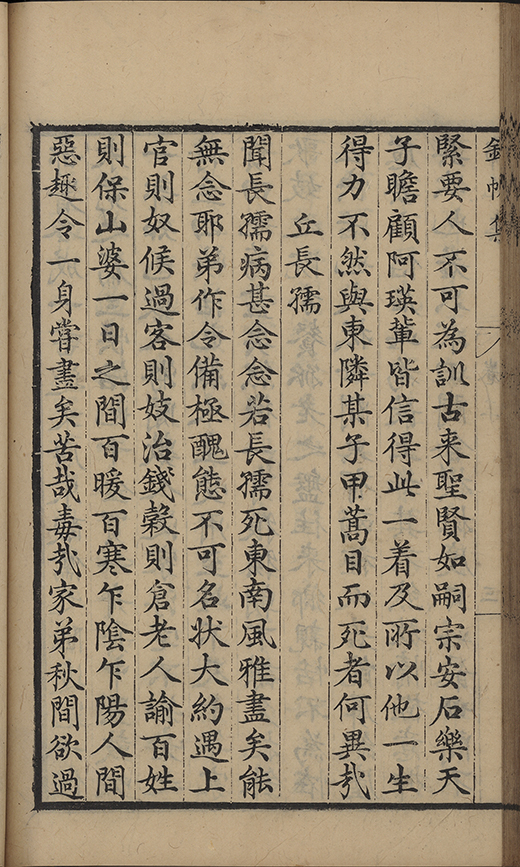 錦帆集
緊要人不可為訓古来聖賢如嗣宗安石樂天
子瞻顧阿瑛輩皆信得此一着及所以他一生
得力不然與東隣某子甲蒿目而死者何異㢤
丘長孺
聞長孺病甚念念若長孺死東南風雅盡矣能
無念耶弟作令備極醜態不可名状大約遇上
官則奴候過客則妓治錢穀則倉老人諭百姓
則保山婆一日之間百暖百寒乍陰乍陽人間
惡趣令一身嘗盡矣苦哉毒㢤家弟秋間欲過